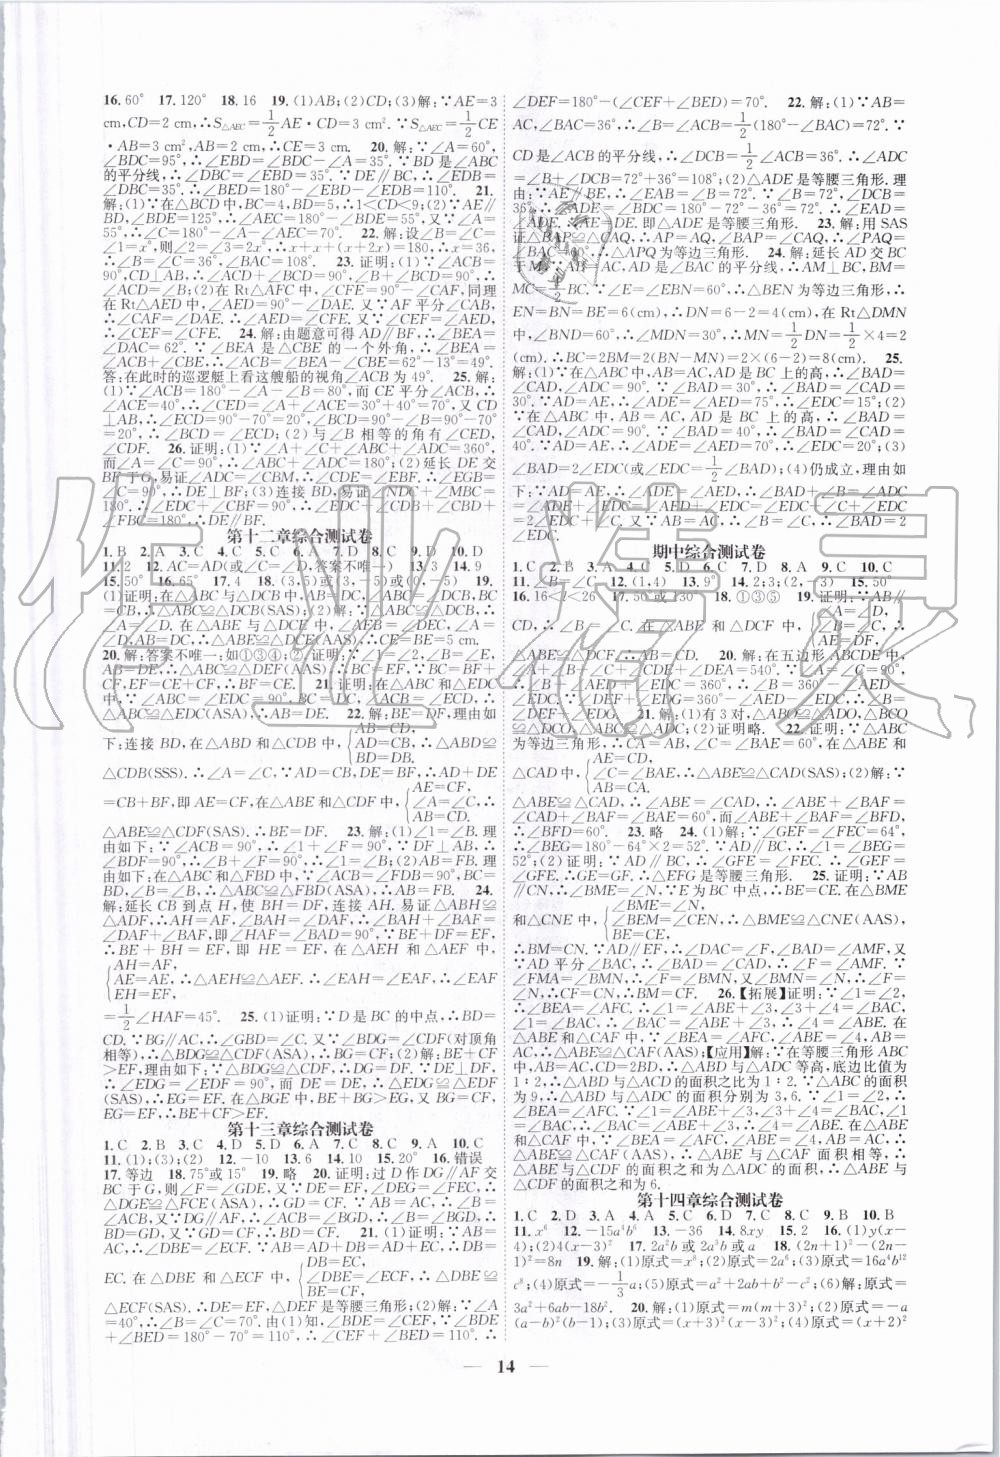 16. 60° 17. 120° 18. 16 19. (1)AB;(2)CD;(3)解:∵AE=3
cm,CD=2 cm,∴S△AEC=1/2 AE·CD=3 cm². ∵S△AEC=1/2 CE
·AB=3 cm²,AB=2 cm,∴CE=3 cm. 20. 解:∵∠A=60°,
∠BDC=95°,∴∠EBD=∠BDC-∠A=35°. ∵BD是∠ABC
的平分线,∴∠DBC=∠EBD=35°. ∵DE∥BC,∴∠EDB=
∠DBC=35°,∴∠BED=180°-∠EBD-∠EDB=110°. 21.
解:(1)∵在△BCD中,BC=4,BD=5,∴1<CD<9;(2)∵AE∥
BD,∠BDE=125°,∴∠AEC=180°-∠BDE=55°. 又∵∠A=
55°,∴∠C=180°-∠A-∠AEC=70°. 22. 解:设∠B=∠C=
∠1=x°,则∠2=∠3=2x°,∴x+x+(x+2x)=180,∴x=36,
∴∠B=∠C=36°,∠BAC=108°. 23. 证明:(1)∵∠ACB=
90°,CD⊥AB,∴∠ACD+∠BCD=90°,∠B+∠BCD=90°,∴
∠ACD=∠B;(2)在Rt△AFC中,∠CFE=90°-∠CAF,同理
在Rt△AED中,∠AED=90°-∠DAE. 又∵AF平分∠CAB,
∴∠CAF=∠DAE,∴∠AED=∠CFE. 又∵∠CEF=∠AED,
∴∠CEF=∠CFE. 24. 解:由题意可得AD∥BF,∴∠BEA=
∠DAC=62°. ∵∠BEA是△CBE的一个外角,∴∠BEA=
∠ACB+∠CBE,∴∠ACB=∠BEA-∠CBE=62°-13°=49°.
答:在此时的巡逻艇上看这艘船的视角∠ACB为49°. 25. 解:
(1)∵∠ACB=180°-∠A-∠B=80°,而CE平分∠ACB,∴
∠ACE=40°,∴∠CED=∠A+∠ACE=30°+40°=70°,又CD
⊥AB,∴∠ECD=90°-70°=20°,∠BCD=90°-∠B=90°-70°
=20°,∴∠BCD=∠ECD;(2)与∠B相等的角有∠CED,
∠CDF. 26. 证明:(1)∵∠A+∠C+∠ABC+∠ADC=360°,
而∠A=∠C=90°,∴∠ABC+∠ADC=180°;(2)延长DE交
BF于G,易证∠ADC=∠CBF,∠CDE=∠EBF. ∴∠EGB=
∠C=90°,∴DE⊥BF;(3)连接BD,易证∠NDC+∠MBC=
180°,∴∠EDC+∠CBF=90°,∴∠EDC+∠CDB+∠CBD+
∠FBC=180°,∴DE∥BF.
第十二章综合测试卷
1. B 2. A 3. C 4. C 5. C 6. A 7. D 8. C 9. D 10. D
11. 2 12. AC=AD(或∠C=∠D,答案不唯一) 13. 3 14. 9
15. 50° 16. 65° 17. 4 18. (3,5)或(3,-5)或(0,-5) 19.
(1)证明:在△ABC与△DCB中,AB=DC,∠ABC=∠DCB,BC
=CB,∴△ABC≌△DCB(SAS);(2)解:∵△ABC≌△DCB,∴
∠A=∠D. 在△ABE与△DCE中,∠AEB=∠DEC,∠A=
∠D,AB=DC,∴△ABE≌△DCE(AAS),∴CE=BE=5 cm.
20. 解:答案不唯一:如①③④;②;证明:∵∠1=∠2,∠B=∠E,
AB=DE,∴△ABC≌△DEF(AAS),∴BC=EF. ∵BC=BF+
CF,EF=CE+CF,∴BF=CE. 21. 证明:在△ABC和△EDC
中,∵∠B=∠D=90°,BC=DC,又∵∠BCA=∠DCE,
∴△ABC≌△EDC(ASA),∴AB=DE. 22. 解:BE=DF,理由如
下:连接BD,在△ABD和△CDB中,{AB=CD,AD=CB,BD=DB.∴△ABD≌
△CDB(SSS).∴∠A=∠C,∵AD=CB,DE=BF,∴AD+DE
=CB+BF,即AE=CF,在△ABE和△CDF中,{AE=CF,∠A=∠C,AB=CD,∴
△ABE≌△CDF(SAS).∴BE=DF. 23. 解:(1)∠1=∠B. 理
由如下:∵∠ACB=90°,∴∠1+∠F=90°. ∵DF⊥AB,∴
∠BDF=90°,∴∠B+∠F=90°,∴∠1=∠B;(2)BC=BD. 理
由如下:在△ABC和△FBD中,∠ACB=∠FDB=90°,BC=
BD,∠B=∠B,∴△ABC≌△FBD(ASA),∴AB=FB. 24.
解:延长CB到点H,使BH=DF,连接AH. 易证△ABH≌
△ADF,∴AH=AF,∠BAH=∠DAF,∴∠BAH+∠BAF=
∠DAF+∠BAF,即∠HAF=∠BAD=90°. ∵BE+DF=EF,
∴BE+BH=EF,即HE=EF. 在△AEH和△AEF中,
{AH=AF,AE=AE,EH=EF,∴△AEH≌△AEF.∴∠EAH=∠EAF,∴∠EAF
=1/2∠HAF=45°. 25. (1)证明:∵D是BC的中点,∴BD=
CD. ∵BG∥AC,∴∠GBD=∠C. 又∵∠BDG=∠CDF(对顶角
相等),∴△BDG≌△CDF(ASA),∴BG=CF;(2)解:BE+CF
>EF,理由如下:∵△BDG≌△CDF,∴DG=DF. ∵DE⊥DF,
∴∠EDG=∠EDF=90°,而DE=DE,∴△EDG≌△EDF
(SAS),∴EG=EF. 在△BGE中,BE+BG>EG,又BG=CF,
EG=EF,∴BE+CF>EF.
第十三章综合测试卷
1. C 2. B 3. C 4. D 5. D 6. A 7. C 8. C 9. A 10. C
11. (1);(3);(2) 12. -10 13. 6 14. 10 15. 20° 16. 错误
17. 等边 18. 75°或15° 19. 略 20. 证明:过D作DG∥AF交
BC于G,则∠F=∠GDE,又∵DE=EF,∠DEG=∠FEC,∴
△DGE≌△FCE(ASA),∴GD=CF. ∵AC=BC,∴∠B=
∠ACB,又∵DG∥AF,∴∠ACB=∠BGD,∴∠B=∠BGD,∴
BD=GD,∴BD=CF. 21. (1)证明:∵AB=AC,∴∠ABC=
∠ACB,∴∠DBE=∠ECF. ∵AB=AD+DB=AD+EC,∴DB=
EC. 在△DBE和△ECF中{DB=EC,∠DBE=∠ECF,BE=CF,∴△DBE≌
△ECF(SAS).∴DE=EF,△DEF是等腰三角形;(2)解:∵∠A
=40°,∴∠B=∠C=70°. 由(1)知,∠BDE=∠CEF,又∵∠BDE
+∠BED=180°-70°=110°,∴∠CEF+∠BED=110°. ∴
∠DEF=180°-(∠CEF+∠BED)=70°. 22. 解:(1)∵AB=
AC,∠BAC=36°,∴∠B=∠ACB=1/2(180°-∠BAC)=72°. ∵
CD是∠ACB的平分线,∴∠DCB=1/2∠ACB=36°. ∴∠ADC
=∠B+∠DCB=72°+36°=108°;(2)△ADE是等腰三角形. 理
由:∵AE∥BE,∴∠EAB=∠B=72°. ∵∠B=72°,∠DCB=
36°,∴∠ADE=∠BDC=180°-72°-36°=72°,∴∠EAD=
∠ADE,∴AE=DE. 即△ADE是等腰三角形. 23. 解:用SAS
证△BAP≌△CAQ,∴AP=AQ,∠BAP=∠CAQ,∴∠PAQ=
∠BAC=60°,∴△APQ为等边三角形. 24. 解:延长AD交BC
于M. ∵AB=AC,AD是∠BAC的平分线,∴AM⊥BC,BM=
MC=1/2BC. ∵∠E=∠EBN=60°,∴△BEN为等边三角形,∴
EN=BN=BE=6(cm),∴DN=6-2=4(cm),在Rt△DMN
中,∠BND=60°,∴∠MDN=30°,∴MN=1/2DN=1/2×4=2
(cm),∴BC=2BM=2(BN-MN)=2(6-2)=8(cm). 25.
解:(1)∵在△ABC中,AB=AC,AD是BC上的高,∴∠BAD=
∠CAD,∠ADC=90°. ∵∠BAD=30°,∴∠BAD=∠CAD=
30°. ∵AD=AE,∴∠ADE=∠AED=75°,∴∠EDC=15°;(2)
∵在△ABC中,AB=AC,AD是BC上的高,∴∠BAD=
∠CAD,∠ADC=90°. ∵∠BAD=40°,∴∠BAD=∠CAD=
40°. ∵AD=AE,∴∠ADE=∠AED=70°,∴∠EDC=20°;(3)
∠BAD=2∠EDC(或∠EDC=1/2∠BAD);(4)仍成立,理由如
下:∵AD=AE,∴∠ADE=∠AED,∴∠BAD+∠B=∠ADC
=∠ADE+∠EDC=∠AED+∠EDC=(∠EDC+∠C)+
∠EDC=2∠EDC+∠C. 又∵AB=AC,∴∠B=∠C,∴∠BAD=2
∠EDC.
期中综合测试卷
1. C 2. B 3. A 4. C 5. D 6. C 7. B 8. A 9. C 10. C
11. ∠B=∠C 12. (1,4) 13. 9° 14. 2;3;(2,-3) 15. 50°
16. 16<l<26 17. 50°或130° 18. ①③⑤ 19. 证明:∵AB∥
CD,∴∠B=∠C. 在△ABE和△DCF中,{∠A=∠D,∠B=∠C,AE=DF,∴
△ABE≌△DCF.∴AB=CD. 20. 解:在五边形ABCDE中,
∠A+∠B+∠AED+∠EDC+∠C=540°. ∵∠A=∠C=90°,
∴∠B+∠AED+∠EDC=360°,∴∠B=360°-∠AED-
∠EDC. ∵∠DEF+∠EDG=360°-∠AED-∠EDC,∴∠B=
∠DEF+∠EDG. 21. 解:(1)有3对,△ABO≌△ADO,△BCO
≌△DCO,△ABC≌△ADC;(2)证明略. 22. 证明:(1)∵△ABC
为等边三角形,∴CA=AB,∠C=∠BAE=60°,在△ABE和
△CAD中,{AE=CD,∠C=∠BAE,AB=CA.∴△ABE≌△CAD(SAS);(2)解:∵
△ABE≌△CAD,∴∠ABE=∠CAD,∴∠ABE+∠BAF=
∠CAD+∠BAF=∠BAE=60°,而∠ABE+∠BAF=∠BFD,
∴∠BFD=60°. 23. 略 24. (1)解:∵∠GEF=∠FEC=64°,
∴∠BEG=180°-64°×2=52°. ∵AD∥BC,∴∠1=∠BEG=
52°;(2)证明:∵AD∥BC,∴∠GFE=∠FEC. ∴∠GEF=
∠GFE.∴GE=GF.∴△EFG是等腰三角形. 25. 证明:∵AB∥
CN,∴∠BME=∠N,∵E为BC中点,∴BE=CE. 在△BME
和△CNE中,{∠BME=∠N,∠BEM=∠CEN,BE=CE,∴△BME≌△CNE(AAS),
∴BM=CN. ∵AD∥EF,∴∠DAC=∠F,∠BAD=∠AMF,又
∵AD平分∠BAC,∴∠BAD=∠CAD,∴∠F=∠AMF. ∵
∠FMA=∠BMN,∴∠F=∠BMN,又∵∠BMN=∠N,∴∠F
=∠N,∴CF=CN,∴BM=CF. 26.【拓展】证明:∵∠1=∠2,
∴∠BEA=∠AFC. ∵∠1=∠ABE+∠3,∠3+∠4=∠BAC,∠1
=∠BAC,∴∠BAC=∠ABE+∠3,∴∠4=∠ABE. 在
△ABE和△CAF中,∵∠BEA=∠AFC,∠ABE=∠4,AB=
AC,∴△ABE≌△CAF(AAS);【应用】解:∵在等腰三角形ABC
中,AB=AC,CD=2BD,∴△ABD与△ADC等高,底边比值为
1:2,∴△ABD与△ACD的面积之比为1:2. ∵△ABC的面积
为9,∴△ABD与△ADC的面积分别为3,6. ∵∠1=∠2,∴
∠BEA=∠AFC. ∵∠1=∠ABE+∠3,∠3+∠4=∠BAC,∠1
=∠BAC,∴∠BAC=∠ABE+∠3,∴∠4=∠ABE. 在△ABE
和△CAF中,∵∠BEA=∠AFC,∠ABE=∠4,AB=AC,∴
△ABE≌△CAF(AAS),∴△ABE与△CAF面积相等,∴
△ABE与△CDF的面积之和为△ADC的面积,∴△ABE与
△CDF的面积之和为6.
第十四章综合测试卷
1. C 2. D 3. A 4. A 5. C 6. D 7. C 8. C 9. B 10. B
11. x⁶ 12. -15a⁴b⁶ 13. -36 14. 8xy 15. 2 16. (1)y(x-
4);(2)4(x-2)² 17. 2a²b或2a³b或a 18. (2n+1)²-(2n-
1)²=8n 19. 解:(1)原式=x⁸;(2)原式=2a⁶;(3)原式=16a⁴b¹²
c⁸;(4)原式=-1/3a;(5)原式=a²+2ab+b²-c²;(6)解:原式=
3a²+6ab-18b². 20. 解:(1)原式=m(m+3)²;(2)原式=-a
(a-b)²(b-1);(3)原式=(x+3)²(x-3)²;(4)原式=(x+2)²
14
作业精灵